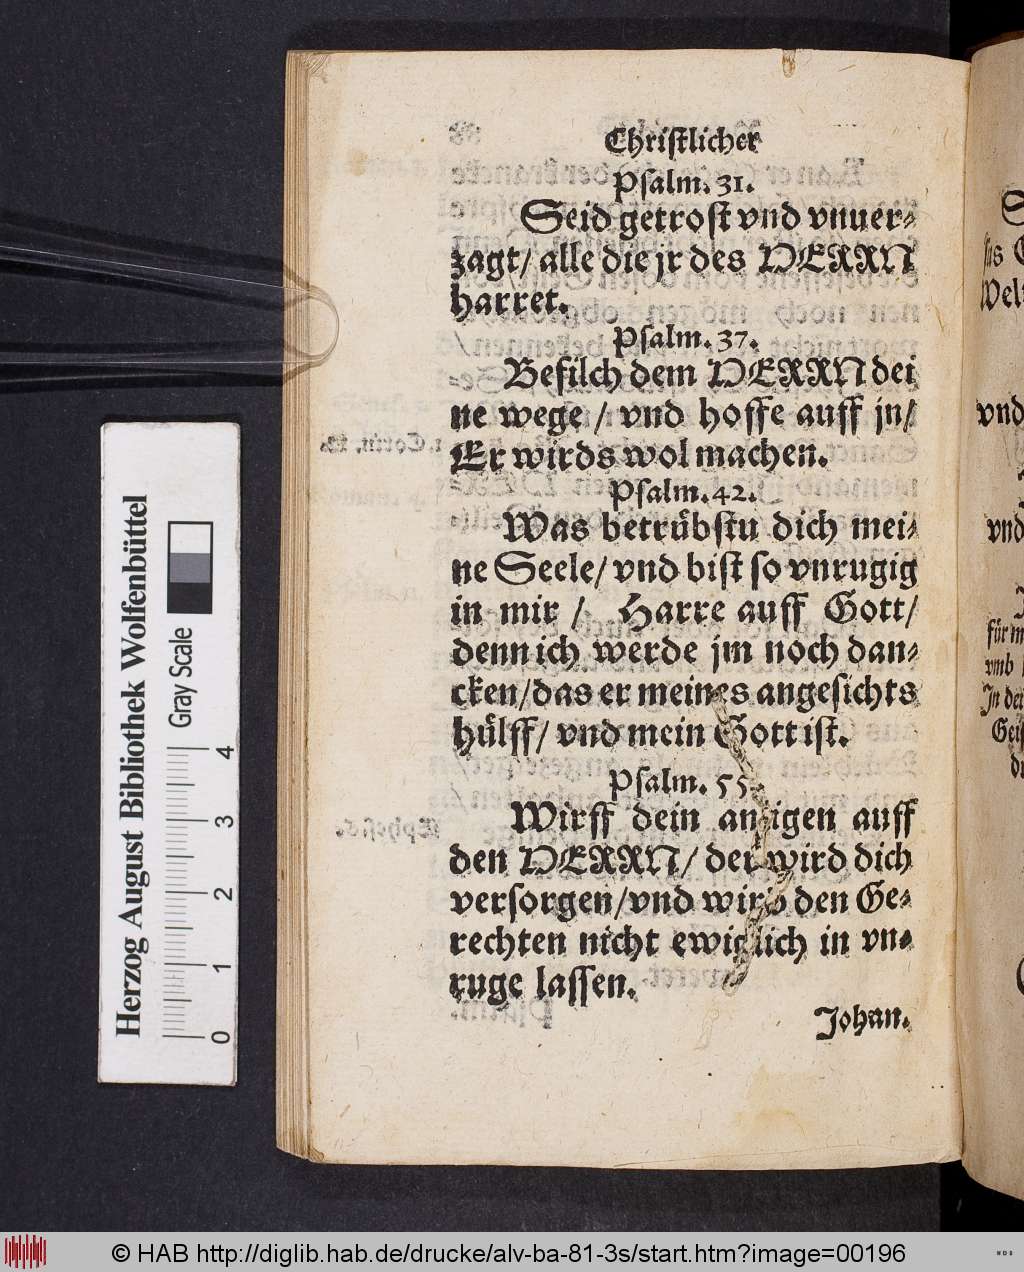 Christlicher
Psalm. 31.
Seid getrost vnd vnuer-
zagt/ alle die jr des HERRN
harret.
Psalm. 37.
Befilch dem HERRN dei
ne wege / vnd hoffe auff jn/
Er wirds wol machen.
Psalm. 42.
Was betruͤbstu dich mei-
ne Seele/ vnd bist so vnrugig
in mir / Harre auff Gott/
denn ich werde jm noch dan-
cken/das er meines angesichts
huͤlff/ vnd mein Gott ist.
Psalm. 55.
Wirff dein anligen auff
den HERRN/ der wird dich
versorgen/vnd wird den Ge-
rechten nicht ewiglich in vn-
ruge lassen.
Johan.
Herzog August Bibliothek Wolfenbüttel
Gray Scale
0 1 2 3 4
vnd
vnd
vmb
In der
© HAB http://diglib.hab.de/drucke/alv-ba-81-3s/start.htm?image=00196